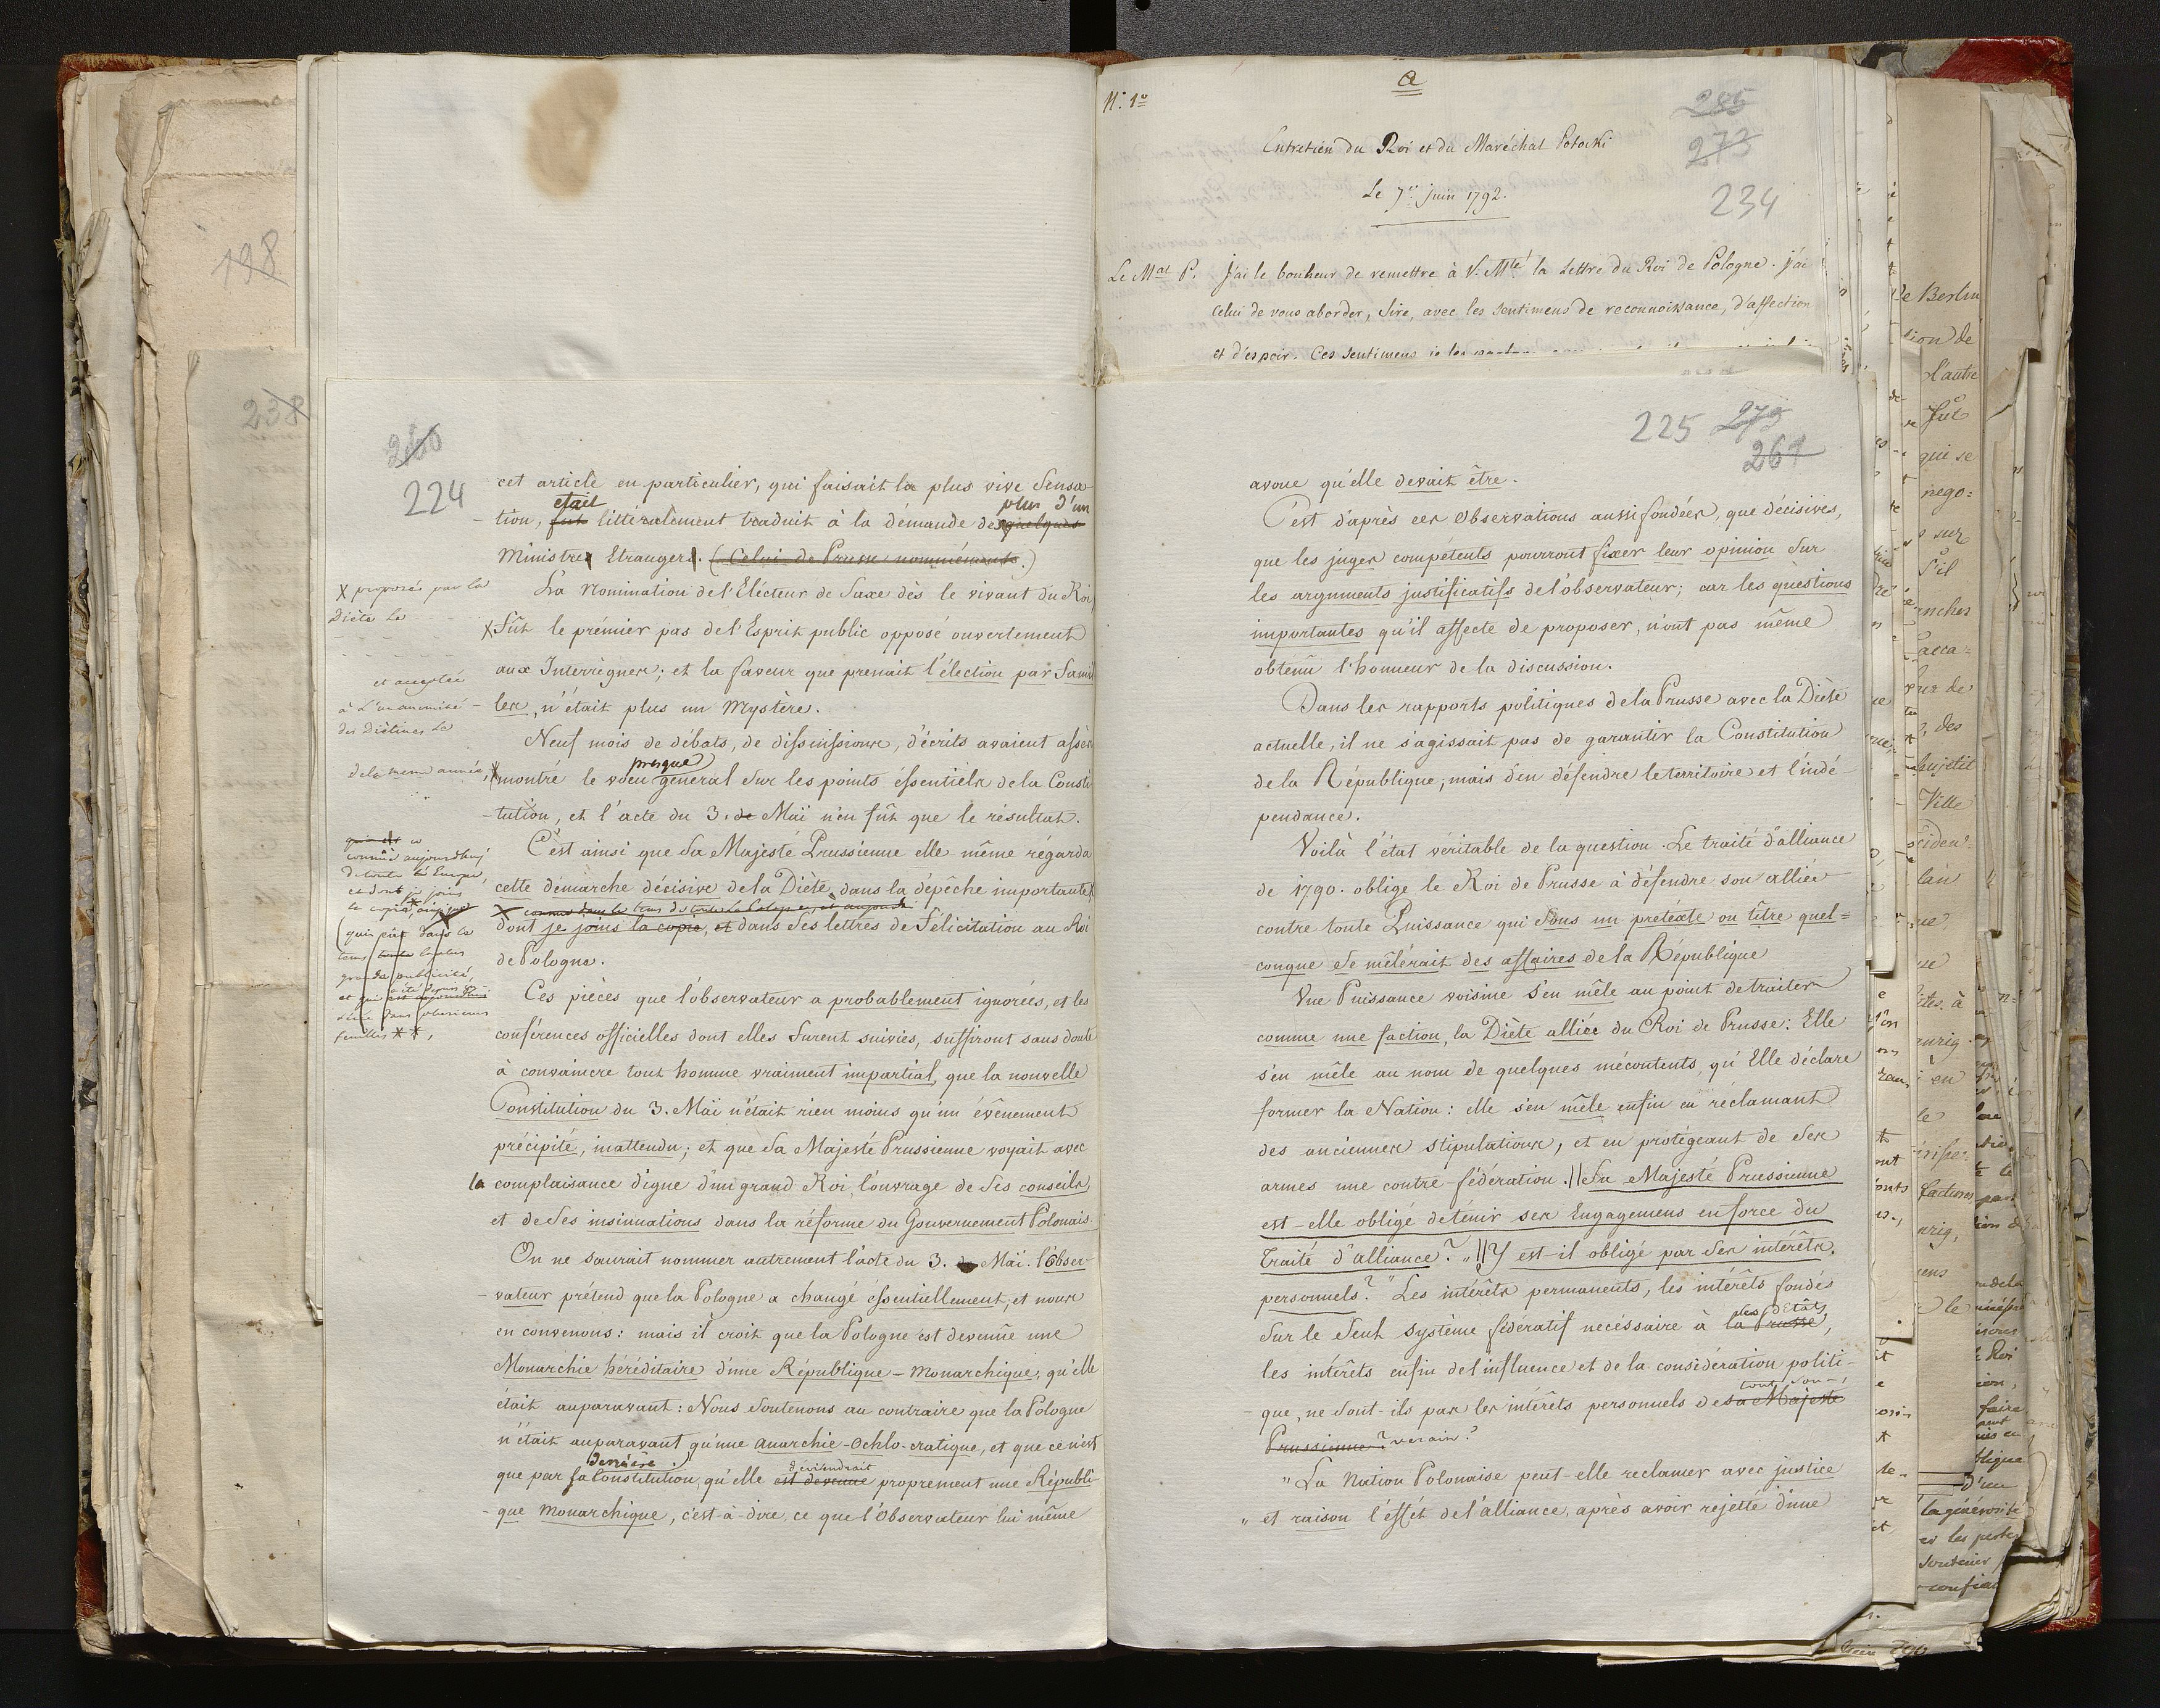 198
238
260
224
cet article en particulier, qui faisait la plus vive Sensa-
était plus d'un
-tion, fut littéralement traduit à la démande de quelques
Ministre Etranger. (Celui de Prusse nommément.)
La Nomination de l'Electeur de Saxe dès le vivant du Roi
X proposée par la
Diète le
X fût le prémier pas de l'Esprit public opposé ouvertement
aux Interrègnes; et la faveur que prenait l'élection par famil
et acceptée
à l'unanimité
des Diètines le
-les, n'était plus un Mystère.
Neuf mois de débats, de discussions, d'écrits avaient assès
de la meme année,
presque
montré le voeu général sur les points éssentiels de la Consti
-tution, et l'acte du 3. de Maï n'en fût que le résultat.
C'est ainsi que Sa Majesté Prussienne elle-même régarda
connüe aujourdhui
de toute l'Europe,
et dont je joins
la copie,
cette démarche décisive de la Diète, dans la dépêche importante,
dont je joins la copie, et dans ses lettres de félicitation au Roi
(qui eût dans le
tems toute la plus
grande publicité,
et qui
dans plusieurs
feuilles * *,
de Pologne.
Ces pièces que l'observateur a probablement ignorées, et les
conférences officielles dont elles furent suivies, suffiront sans doute
à convaincre tout homme vraiment impartial, que la nouvelle
Constitution du 3. Maï n'était rien moins qu'un évênement
précipité, inattendu; et que Sa Majesté Prussienne voyait avec
la complaisance digne d'un grand Roi, l'ouvrage de ses conseils,
et de ses insinuations dans la réforme du Gouvernement Polonais.
On ne saurait nommer autrement l'acte du 3. de Maï. l'Obser-
-vateur prétend que la Pologne a changé éssentiellement, et nous
en convenons: mais il croit que la Pologne est devenüe une
Monarchie héréditaire d'une République-Monarchique, qu'elle
était auparavant: Nous soutenons au contraire que la Pologne
n'était auparavant qu'une anarchie-Ochlo-cratique, et que ce n'est
dernière deviendrait
que par sa Constitution, qu'elle est devenue proprement une Républi-
-que Monarchique, c'est-à-dire, ce que l'Observateur lui même
N.º 1º
a
285
273
234
Entretien du Roi et du Maréchal Potocki
Le 7. juin 1792.
Le Mal P. J'ai le bonheur de remettre à V. Mté la lettre du Roi de Pologne. j'ai
celui de vous aborder, Sire, avec les sentimens de reconnoissance, d'affection
et d'espoir. Ces sentimens je les
225 279
261
avoue qu'elle devait être.
C'est d'après ces Observations aussi fondées, que décisives,
que les juges compétents pourront fixer leur opinion sur
les arguments justificatifs de l'observateur; car les questions
importantes qu'il affecte de proposer, n'ont pas même
obtenü l'honneur de la discussion.
Dans les rapports politiques de la Prusse avec la Diète
actuelle, il ne s'agissait pas de garantir la Constitution
de la République, mais d'en défendre le territoire et l'indé-
pendance.
Voilà l'état véritable de la question. Le traité d'alliance
de 1790. oblige le Roi de Prusse à défendre son alliée
contre toute Puissance qui sous un prétéxte ou titre quel=
conque se mêlerait des affaires de la République
Une Puissance voisine s'en mêle au point de traiter
comme une faction, la Diète alliée du Roi de Prusse: Elle
s'en mêle au nom de quelques mécontents, qu'Elle déclare
former la Nation: elle s'en mêle enfin en réclamant
des anciennes stipulations, et en protégeant de ses
armes une contre-fédération. || Sa Majesté Prussienne
est-elle obligé de tenir ses Engagemens en force du
Traité d'alliance? " || Y est-il obligé par ses intérêts
personnels? " Les intérêts permanents, les intérêts fondés
des états
sur le seul système fédératif necessaire à la Prusse,
les intérêts enfin de l'influence et de la considération politi-
tout sou-
-que, ne sont-ils pas les intérêts personnels de sa Majesté
Prussienne? verain?
"La Nation Polonaise peut-elle reclamer avec justice
" et raison l'effét de l'alliance, après avoir rejetté d'une